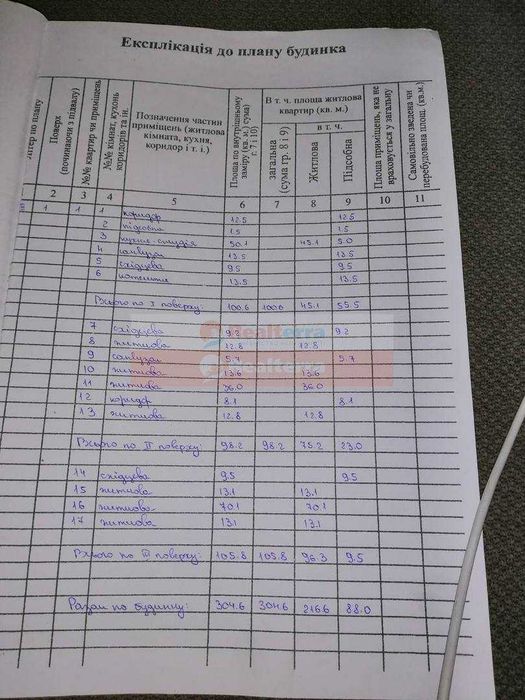 Експлікація до плану будинка
Літер по плану
Поверх (починаючи з підвалу)
№№ квартир чи приміщень
№№ кімнат, кухонь коридорів та ін.
Позначення частин приміщень (житлова кімната, кухня, коридор і т. і.)
Площа по внутрішньому заміру (кв. м.) сума г. 7 і 10)
В т. ч. площа житлова квартир (кв. м.)
загальна (сума гр. 8 і 9)
в т. ч.
Житлова
Підсобна
Площа приміщень, яка не враховується у загальну
Самовільно зведена чи перебудована площ. (кв.м.)
2 3 4 5 6 7 8 9 10 11
1 1 1 коридор 12.5 12.5
2 підсобна 1.5 1.5
3 кухня-студія 50.1 45.1 5.0
4 санвузол 13.5 13.5
5 східцева 9.5 9.5
6 котельня 13.5 13.5
Всього по I поверху: 100.6 100.6 45.1 55.5
7 східцева 9.2 9.2
8 житлова 12.8 12.8
9 санвузол 5.7 5.7
10 житлова 13.6 13.6
11 житлова 36.0 36.0
12 коридор 8.1 8.1
13 житлова 12.8 12.8
Всього по II поверху: 98.2 98.2 75.2 23.0
14 східцева 9.5 9.5
15 житлова 13.1 13.1
16 житлова 70.1 70.1
17 житлова 13.1 13.1
Всього по III поверху: 105.8 105.8 96.3 9.5
Разом по будинку: 304.6 304.6 216.6 88.0
Realterra
Realterra